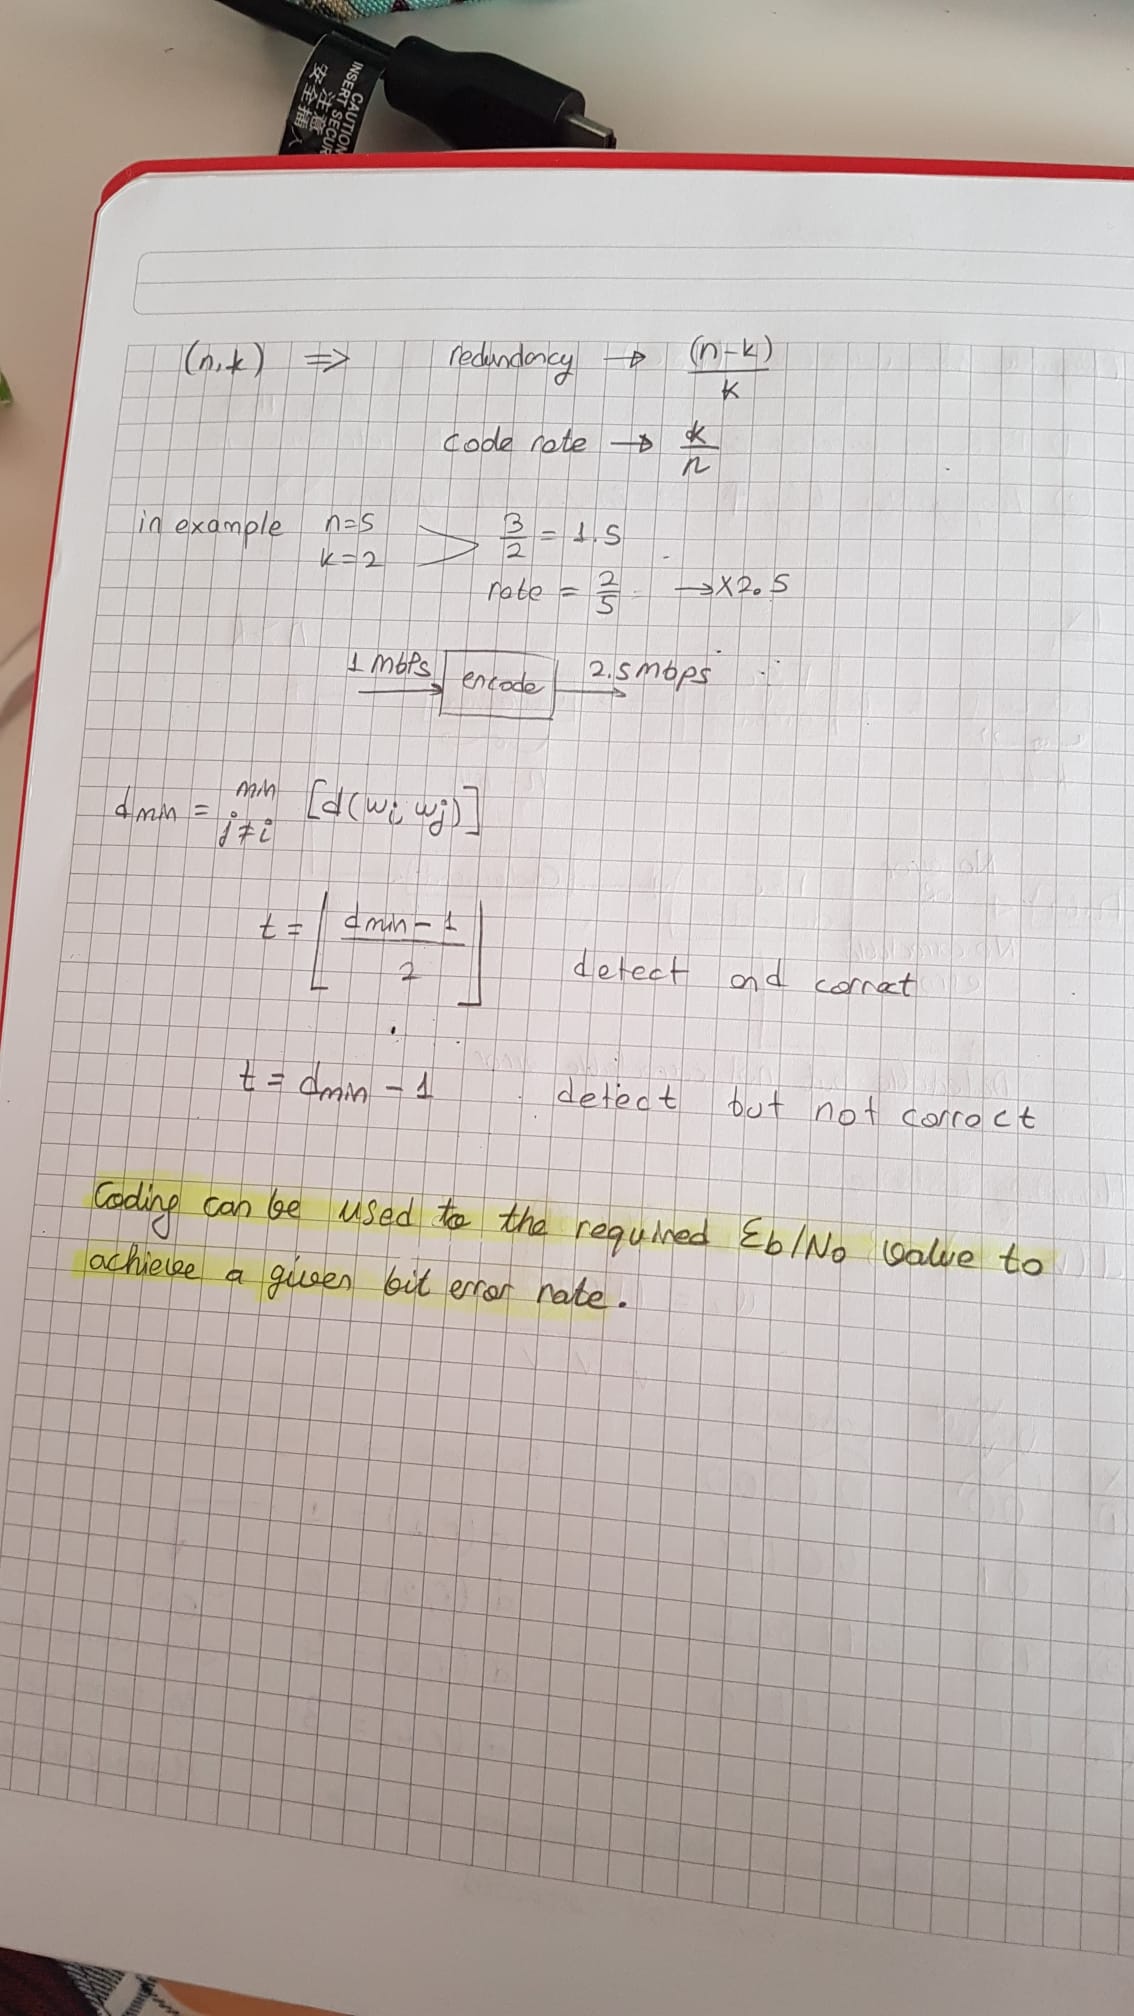 CAUTION
INSERT SECUR
注意
安全插入
(n,k) => redundancy → (n-k)/k
code rate → k/n
in example n=5 3/2 = 1.5
k=2
rate = 2/5 → x2.5
1 mbps encode 2.5 mbps
dmin = min [d(wi, wj)]
j≠i
t = ⌊(dmin - 1)/2⌋ detect and correct
t = dmin - 1 detect but not correct
Coding can be used to the required Eb/No value to
achieve a given bit error rate.